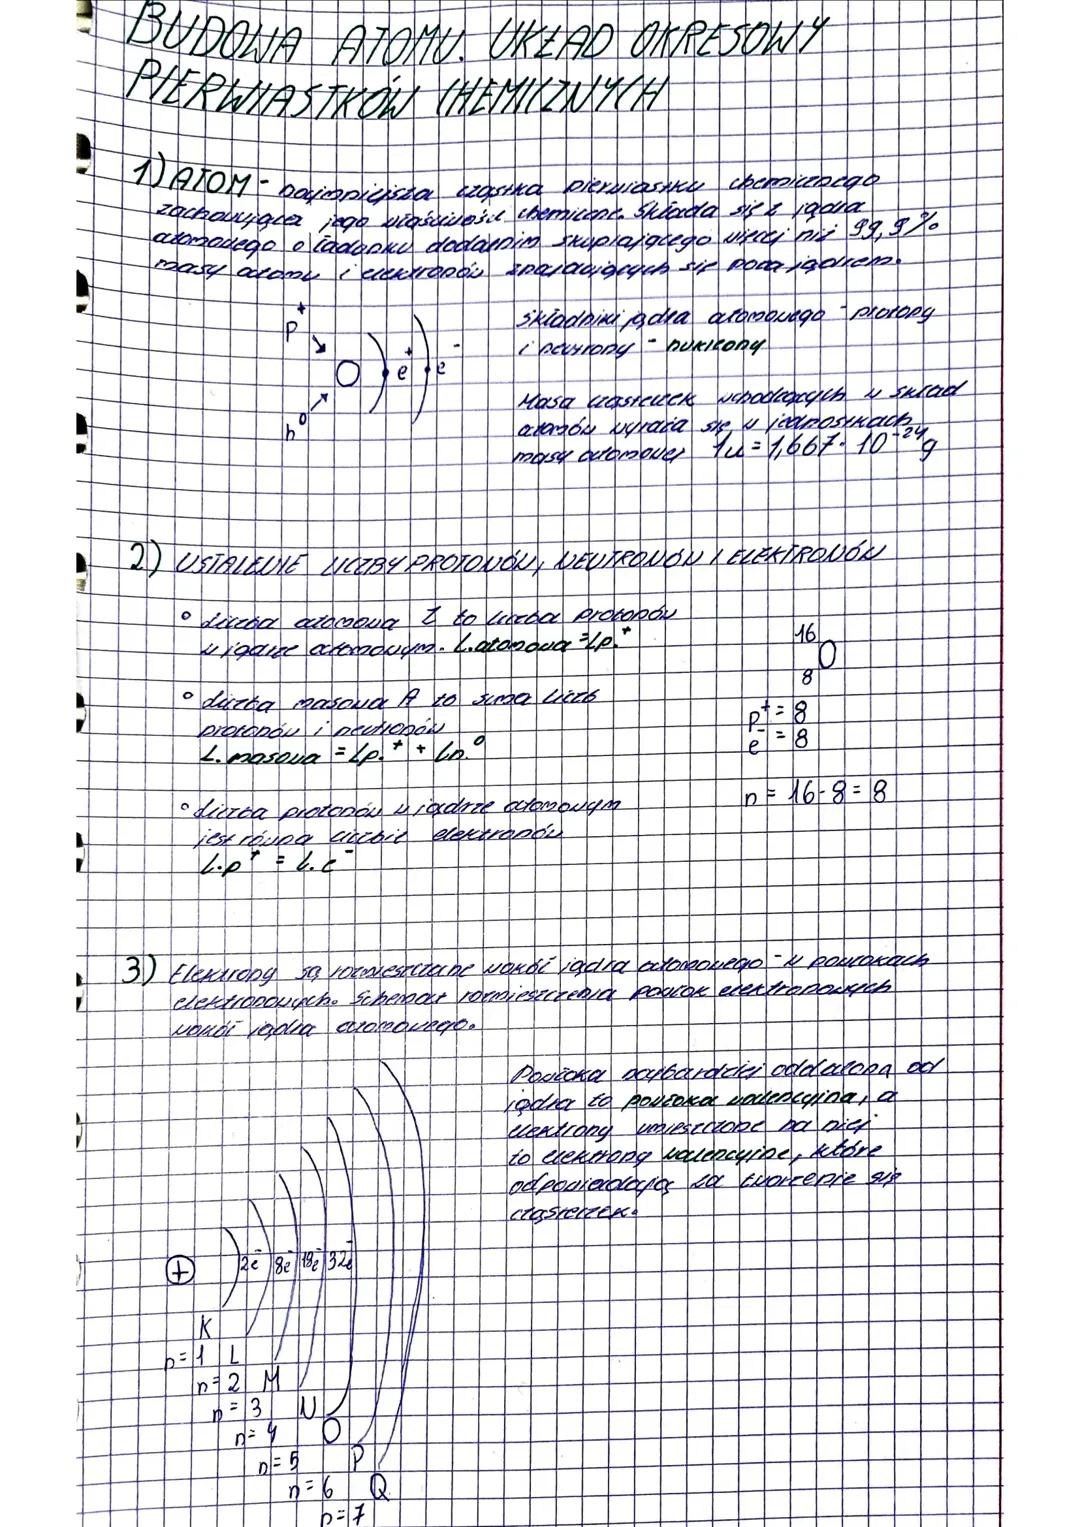 BUDOWA ATOMU. UKŁAD OKRESOWY
PIERWIASTKÓW CHEMICZNYCH
1) ATOM - najmniejsza cząstka pierwiastku chemicznego
zachowująca jego właściwości chemiczne. Składa się z jądra
atomowego o ładunku dodatnim skupiającego więcej niż 99,9%
masy atomu i elektronów znajdujących się poza jądrem.
p+
n0
e+
e-
Składniki jądra atomowego - protony
i neutrony - nukleony
Masa cząsteczek wchodzących w skład
atomów wyraża się w jednostkach
masy atomowej 1u = 1,667 · 10^-24 g
2) USTALENIE LICZBY PROTONÓW, NEUTRONÓW I ELEKTRONÓW
° Liczba atomowa Z to liczba protonów
w jądrze atomowym. L.atomowa = Lp.+
° Liczba masowa A to suma liczb
protonów i neutronów
L. masowa = Lp.+ + Ln.0
° Liczba protonów w jądrze atomowym
jest równa liczbie elektronów
L.p+ = L.e-
16
O
8
p+ = 8
e- = 8
n = 16-8 = 8
3) Elektrony są rozmieszczane wokół jądra atomowego - w powłokach
elektronowych. Schemat rozmieszczenia powłok elektronowych
wokół jądra atomowego.
Powłoka najbardziej oddalona od
jądra to powłoka walencyjna, a
elektrony umieszczone na niej
to elektrony walencyjne, które
odpowiadają za tworzenie się
cząsteczek.
+ 2e- 8e- 18e- 32e-
K
n=1 L
n=2 M
n=3 N
n=4 O
n=5 P
n=6 Q
n=7